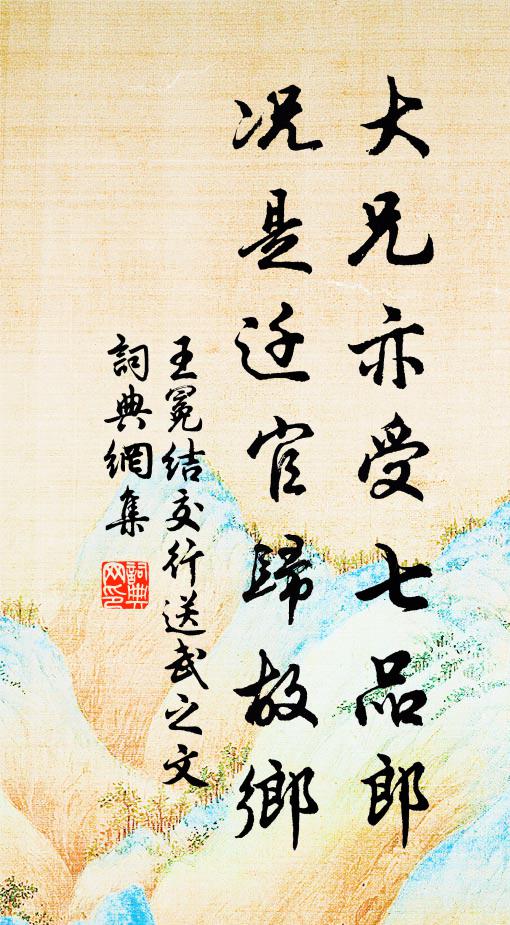 大兄亦受七品郎
况是迁官歸故鄉
王冕结交行送武之文
詞典網集
詞典網印